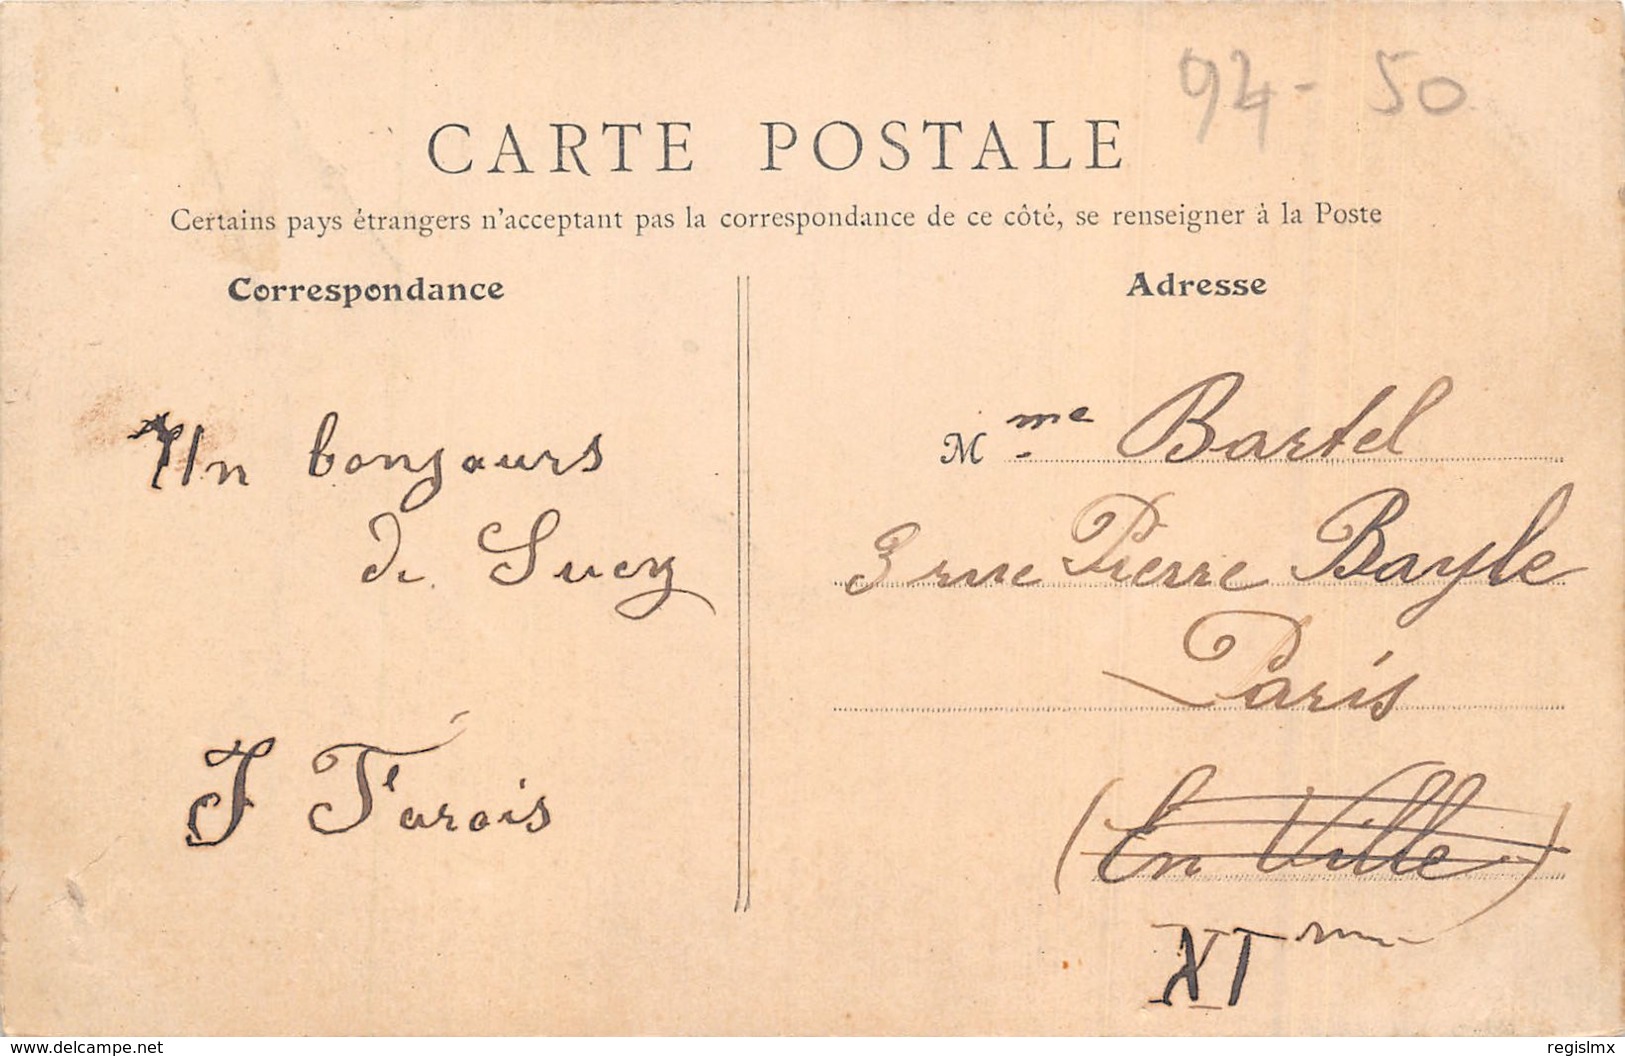 94-50
CARTE POSTALE
Certains pays étrangers n'acceptant pas la correspondance de ce côté, se renseigner à la Poste
Correspondance
Un bonjours
de Sucy
J Farois
Adresse
Mme Bartel
3 rue Pierre Bayle
Paris
(En Ville)
XIme
www.delcampe.net
regislmx